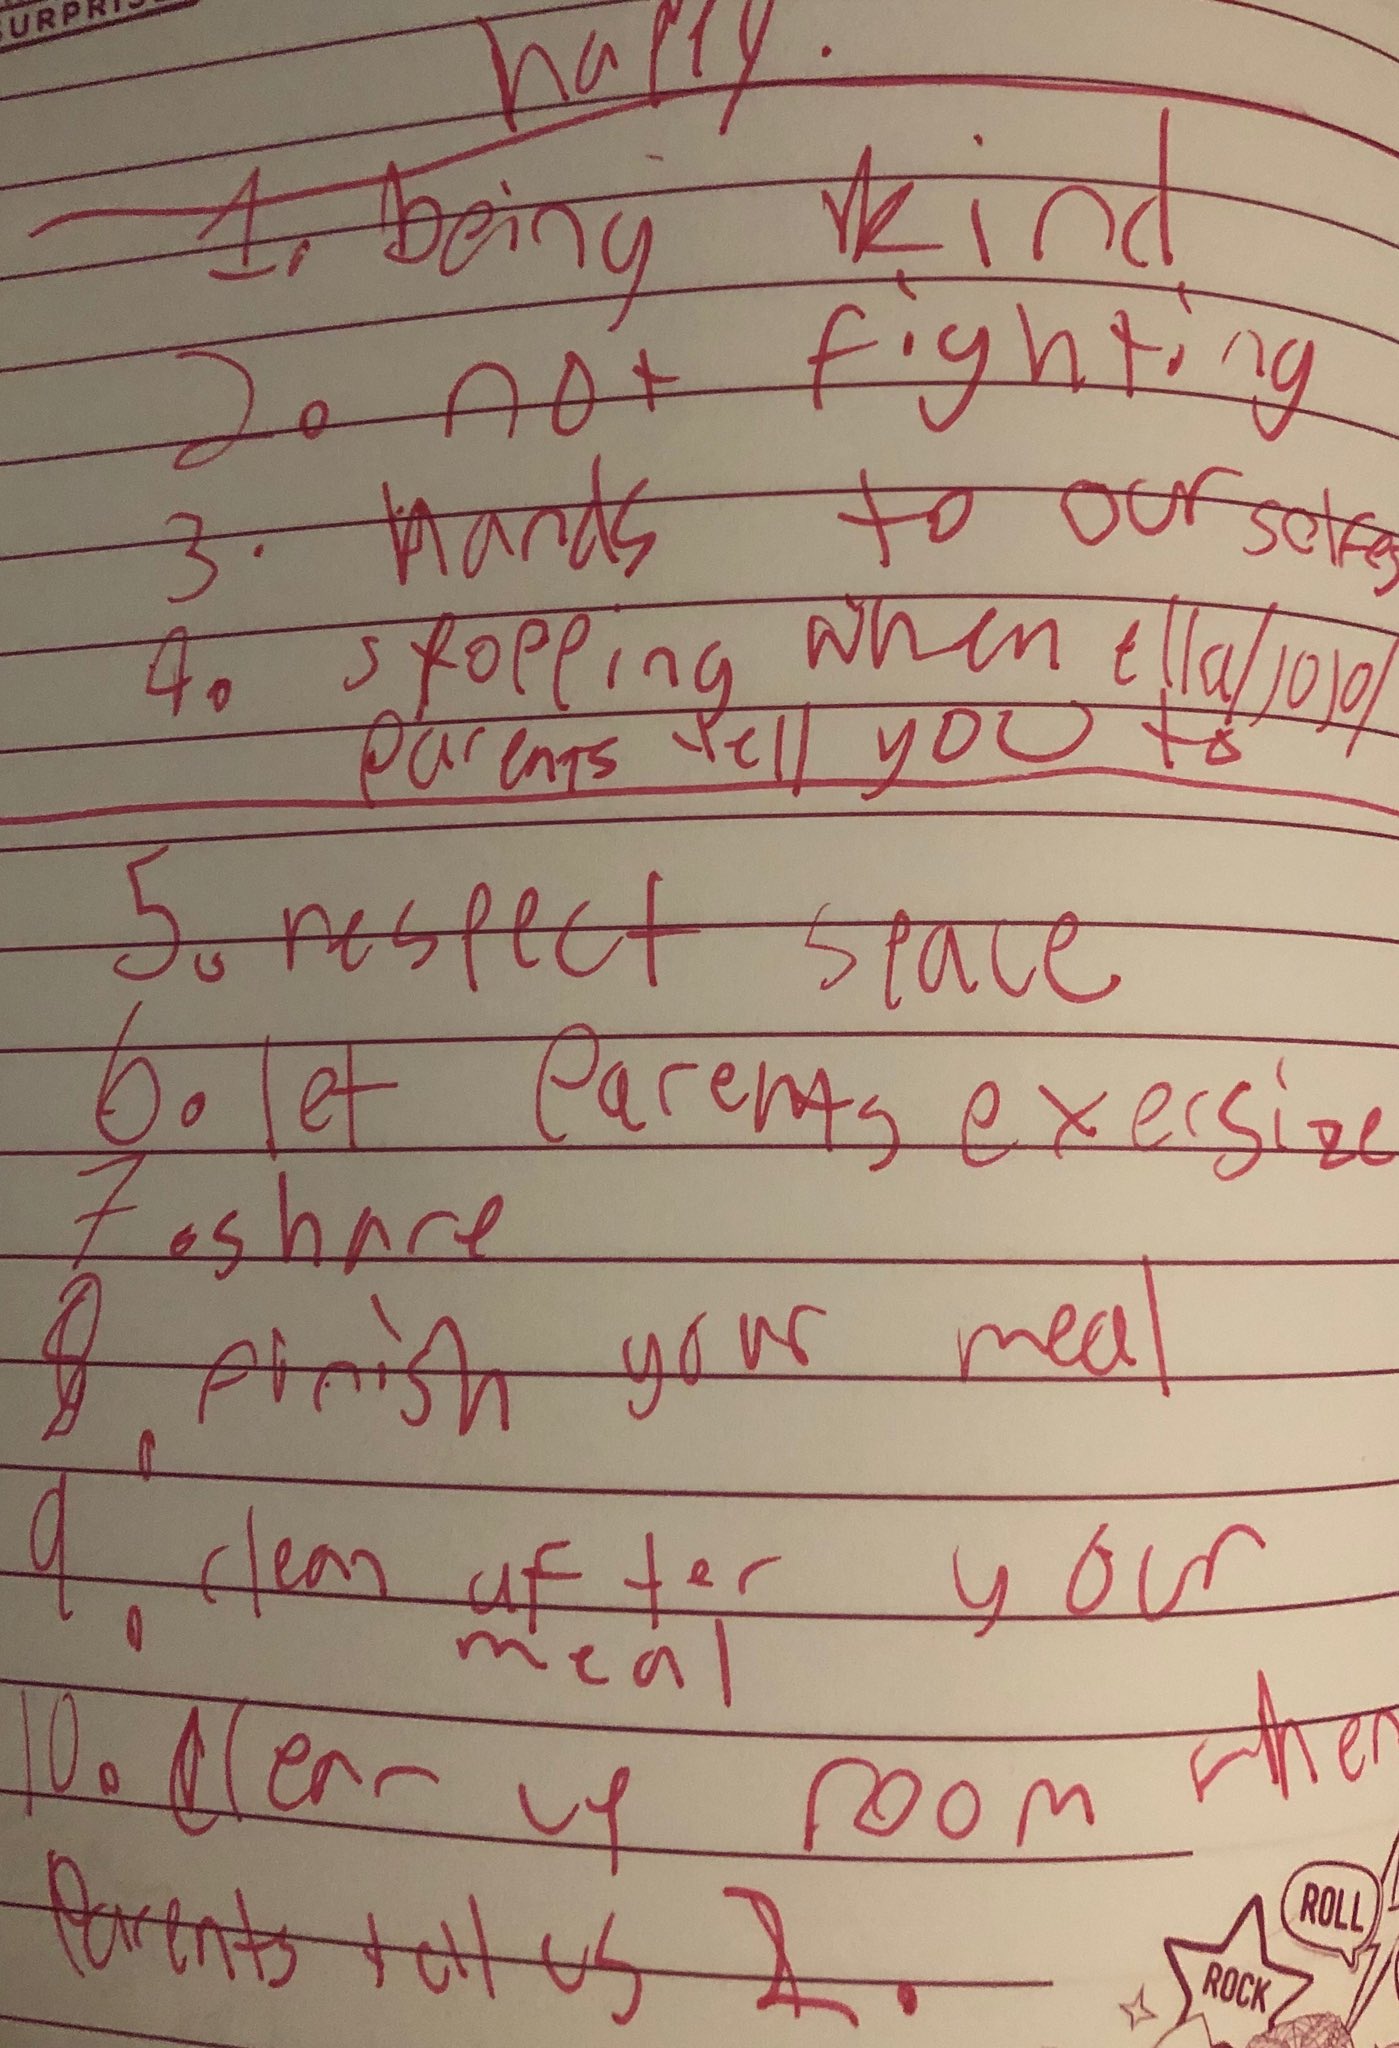 SURPRISE
happy.
1. being kind
2. not fighting
3. hands to ourselfes
4. stopping when ella/jojo/
parents tell you to
5. respect space
6. let parents exersize
7. share
8. finish your meal
9. clean after your
meal
10. clean up room when
parents tell us 2.
ROLL
ROCK